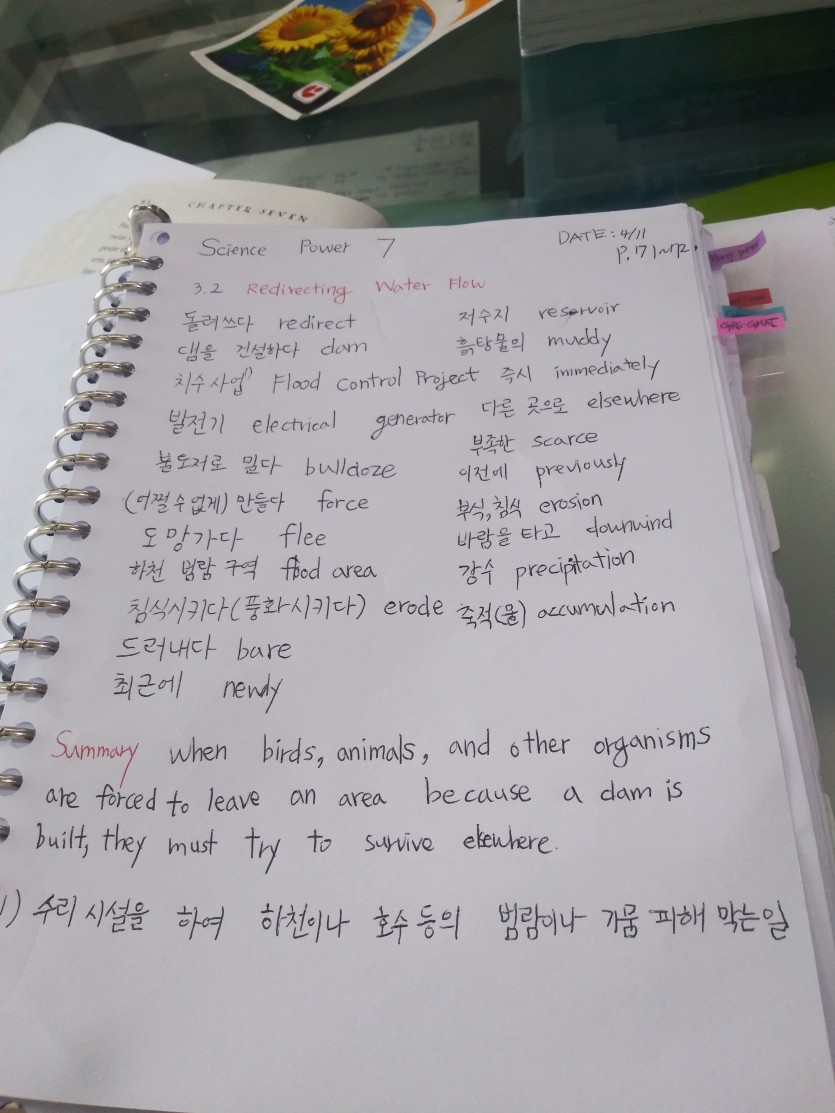 CHAPTER SEVEN
Science Power 7
DATE: 4/11
P. 71~72.
3.2 Redirecting Water Flow
돌려쓰다 redirect
댐을 건설하다 dam
치수사업1) Flood Control Project
발전기 electrical generator
불도저로 밀다 bulldoze
(어쩔 수 없게) 만들다 force
도망가다 flee
하천 범람 구역 flood area
침식시키다(풍화시키다) erode
드러내다 bare
최근에 newly
저수지 reservoir
흙탕물의 muddy
즉시 immediately
다른 곳으로 elsewhere
부족한 scarce
이전에 previously
부식,침식 erosion
바람을 타고 downwind
강수 precipitation
축적(물) accumulation
Summary when birds, animals, and other organisms
are forced to leave an area because a dam is
built, they must try to survive elsewhere.
1) 수리시설을 하여 하천이나 호수 등의 범람이나 가뭄 피해 막는일
GRE-GMAT